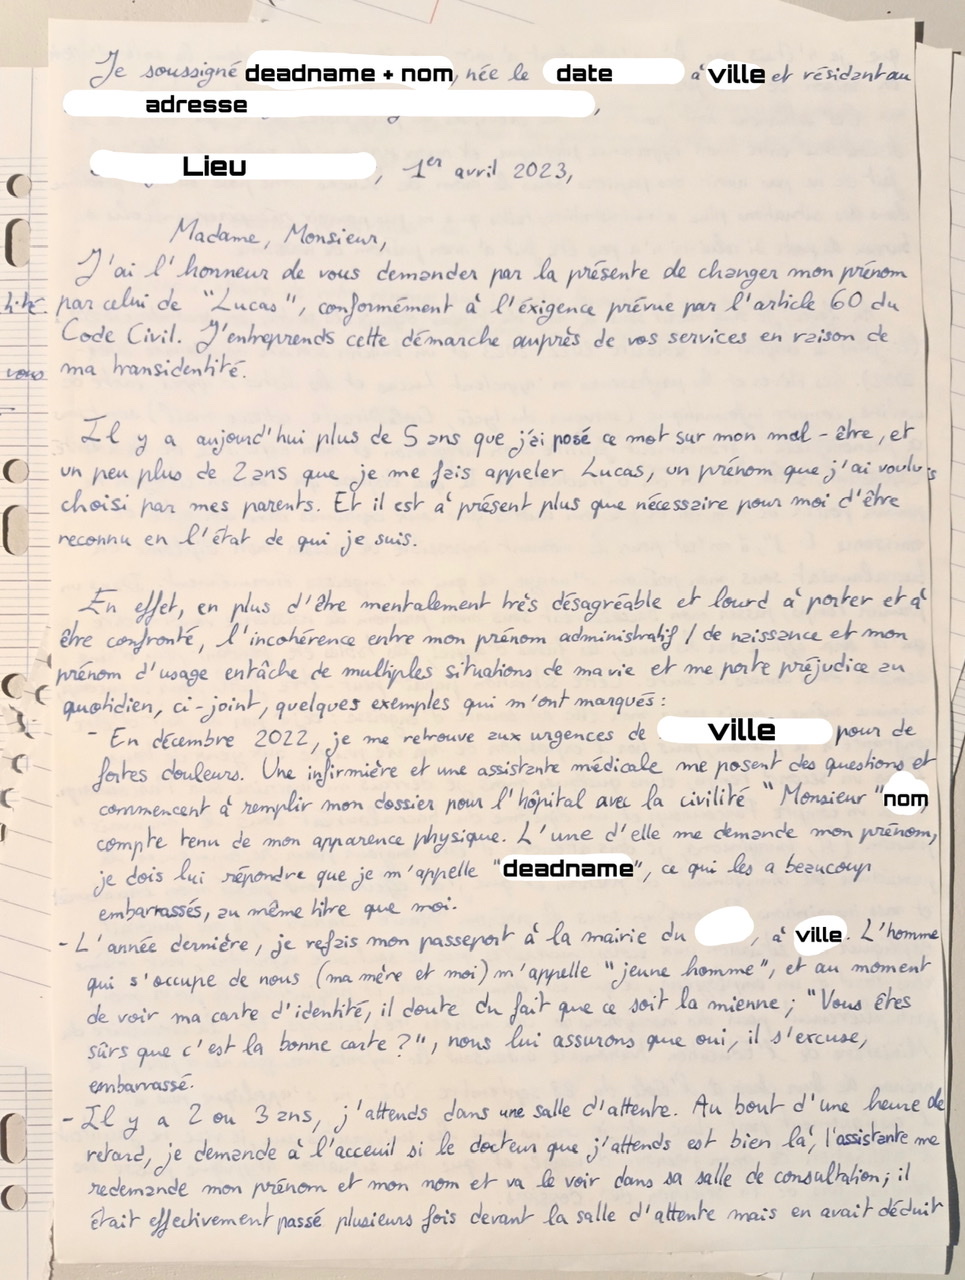 Je soussigné deadname + nom, née le date à ville et résidant au
adresse,
Lieu, 1er avril 2023,
Madame, Monsieur,
J'ai l'honneur de vous demander par la présente de changer mon prénom
par celui de "Lucas", conformément à l'éxigence prévue par l'article 60 du
Code Civil. J'entreprends cette démarche auprès de vos services en raison de
vous
ma transidentité.
Il y a aujourd'hui plus de 5 ans que j'ai posé ce mot sur mon mal-être, et
un peu plus de 2 ans que je me fais appeler Lucas, un prénom que j'ai voulu
choisi par mes parents. Et il est à présent plus que nécessaire pour moi d'être
reconnu en l'état de qui je suis.
En effet, en plus d'être mentalement très désagréable et lourd à porter et à
être confronté, l'incohérence entre mon prénom administratif / de naissance et mon
prénom d'usage entâche de multiples situations de ma vie et me porte préjudice au
quotidien, ci-joint, quelques exemples qui m'ont marqués :
- En décembre 2022, je me retrouve aux urgences de ville pour de
fortes douleurs. Une infirmière et une assistante médicale me posent des questions et
commencent à remplir mon dossier pour l'hôpital avec la civilité "Monsieur" nom
compte tenu de mon apparence physique. L'une d'elle me demande mon prénom,
je dois lui répondre que je m'appelle "deadname", ce qui les a beaucoup
embarrassés, au même titre que moi.
- L'année dernière, je refais mon passeport à la mairie du , à ville. L'homme
qui s'occupe de nous (ma mère et moi) m'appelle "jeune homme", et au moment
de voir ma carte d'identité, il doute du fait que ce soit la mienne ; "Vous êtes
sûrs que c'est la bonne carte ?", nous lui assurons que oui, il s'excuse,
embarrassé.
- Il y a 2 ou 3 ans, j'attends dans une salle d'attente. Au bout d'une heure de
retard, je demande à l'acceuil si le docteur que j'attends est bien là, l'assistante me
redemande mon prénom et mon nom et va le voir dans sa salle de consultation ; il
était effectivement passé plusieurs fois devant la salle d'attente mais en avait déduit